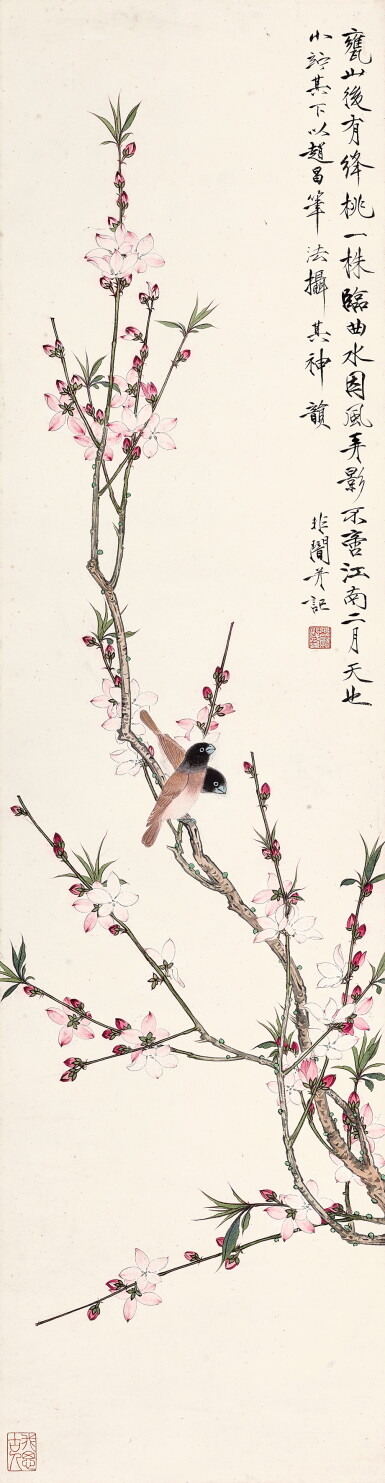 甕山後有絳桃一株臨曲水園風弄影不啻江南二月天也
小立其下以趙昌筆法攝其神韻
非闇并記
我思古人